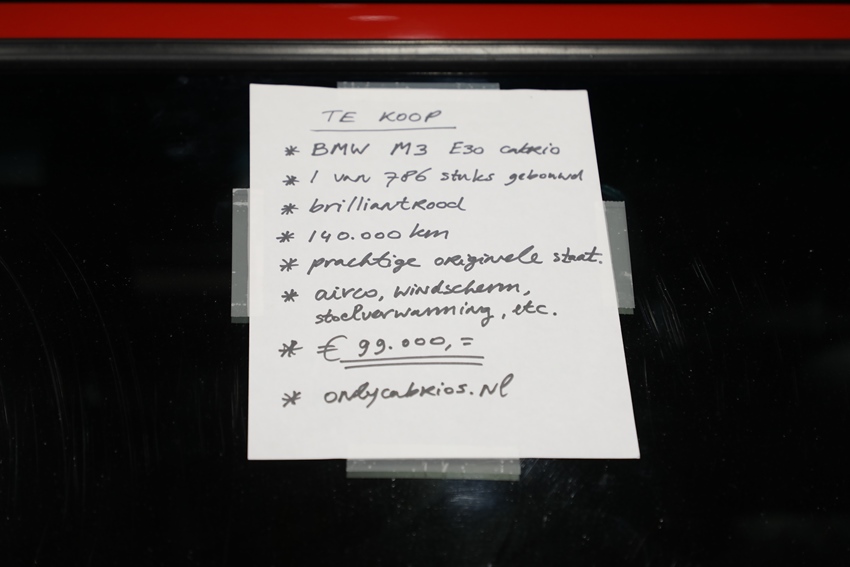 TE KOOP
* BMW M3 E30 cabrio
* 1 van 786 stuks gebouwd
* brilliantrood
* 140.000 km
* prachtige originele staat.
* airco, windscherm,
stoelverwarming, etc.
* € 99.000,=
* onlycabrios.nl